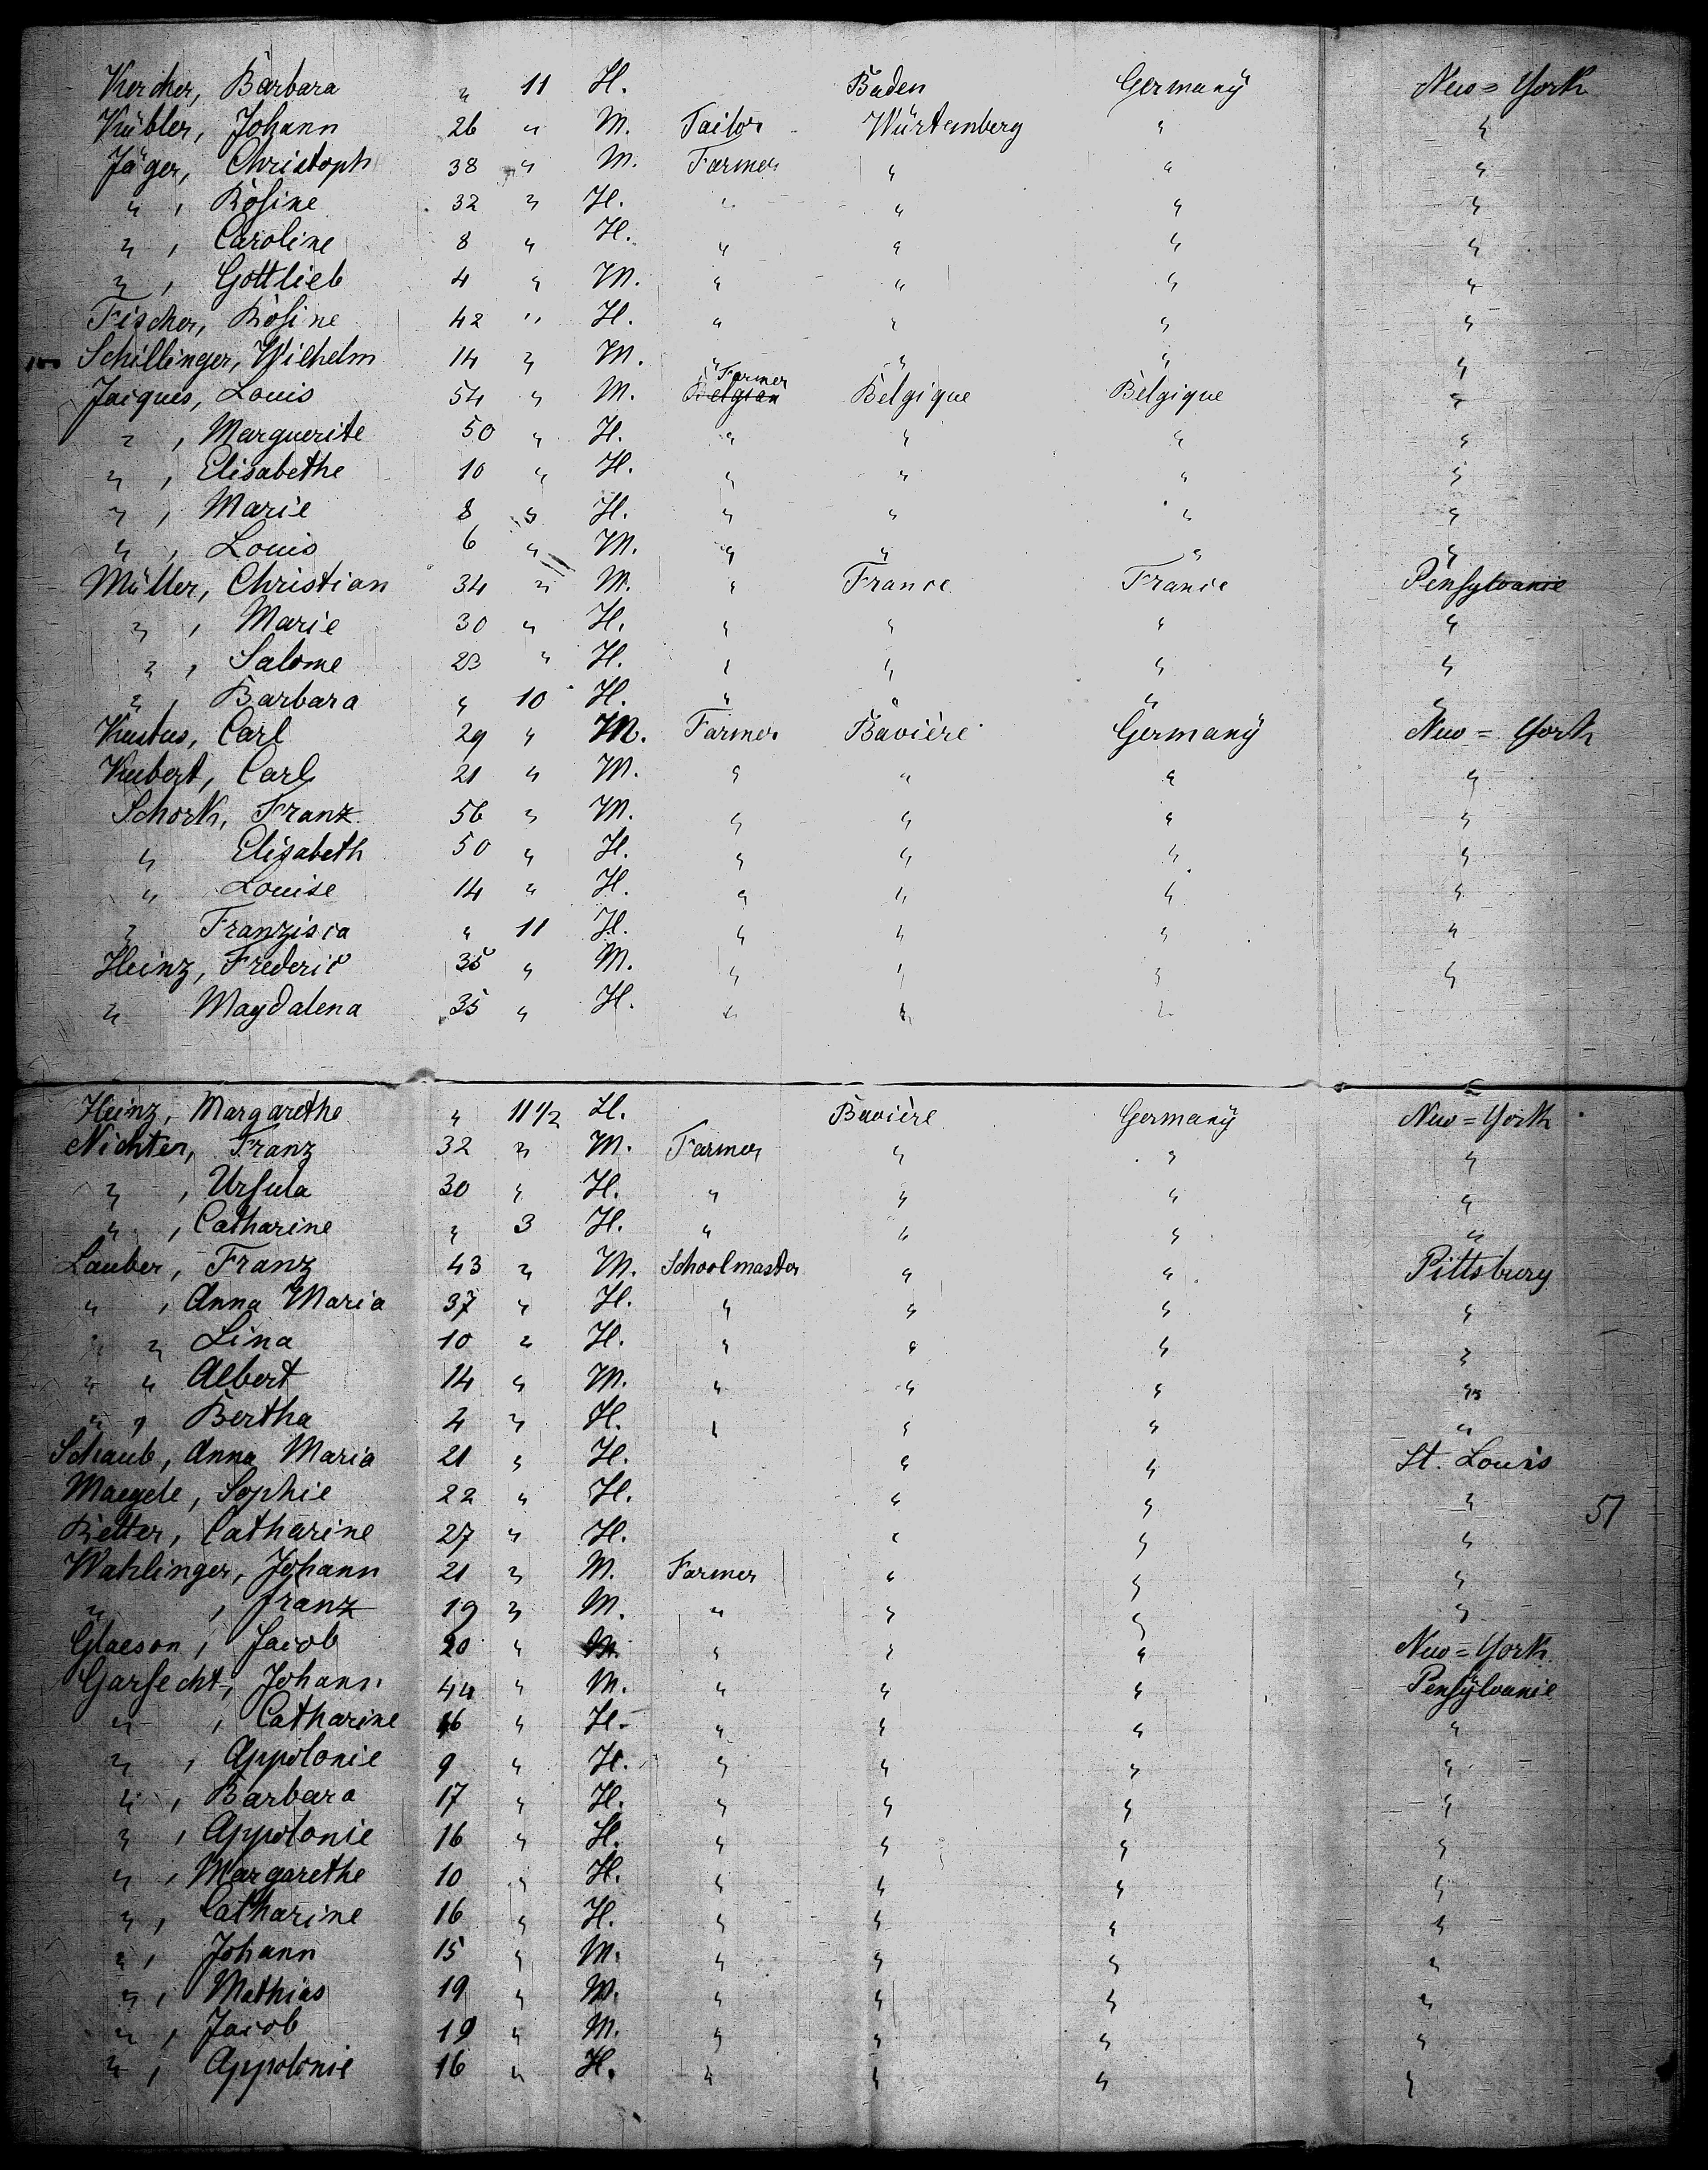 Kercher, Barbara " 11 H. Baden Germany New=York
Kübler, Johann 26 " M. Tailor Würtemberg " "
Jäger, Christoph 38 " M. Farmer " " "
" , Rosine 32 " H. " " " "
" , Caroline 8 " H. " " " "
" , Gottlieb 4 " M. " " " "
Fischer, Rosine 42 " H. " " " "
Schillinger, Wilhelm 14 " M. " " " "
Farmer
Jaiques, Louis 54 " M. Belgian Belgique Belgique "
" , Marguerite 50 " H. " " " "
" , Elisabethe 10 " H. " " " "
" , Marie 8 " H. " " " "
" , Louis 6 " M. " " " "
Müller, Christian 34 " M. " France France Pensylvanie
" , Marie 30 " H. " " " "
" , Salome 23 " H. " " " "
" , Barbara " 10 H. " " " "
Kustus, Carl 29 " M. Farmer Bavière Germany New=York
Kubert, Carl 21 " M. " " " "
Schork, Franz 56 " M. " " " "
" Elisabeth 50 " H. " " " "
" Louise 14 " H. " " " "
" Franzisca " 11 H. " " " "
Heinz, Frederic 35 " M. " " " "
" Magdalena 35 " H. " " "
Heinz, Margarethe " 11 1/2 H. Bavière Germany New=York
Nichter, Franz 32 " M. Farmer " " "
" , Ursula 30 " H. " " " "
" , Catharine " 3 H. " " " "
Lauber, Franz 43 " M. Schoolmaster " " Pittsburg
" , Anna Maria 37 " H. " " " "
" " Lina 10 " H. " " " "
" " Albert 14 " M. " " " "
" " Bertha 4 " H. " " " "
Schaub, Anna Maria 21 " H. " " St. Louis
Maegele, Sophie 22 " H. " " "
51
Retter, Catharine 27 " H. " " "
Wahlinger, Johann 21 " M. Farmer " " "
" , Franz 19 " M. " " " "
Glaeson, Jacob 20 " M. " " " New=York
Garsecht, Johann 44 " M. " " " Pensylvanie
" , Catharine 46 " H. " " " "
" , Appolonie 9 " H. " " " "
" , Barbara 17 " H. " " " "
" , Appolonie 16 " H. " " " "
" , Margarethe 10 " H. " " " "
" , Catharine 16 " H. " " " "
" , Johann 15 " M. " " " "
" , Mathias 19 " M. " " " "
" , Jacob 19 " M. " " " "
" , Appolonie 16 " H. " " " "